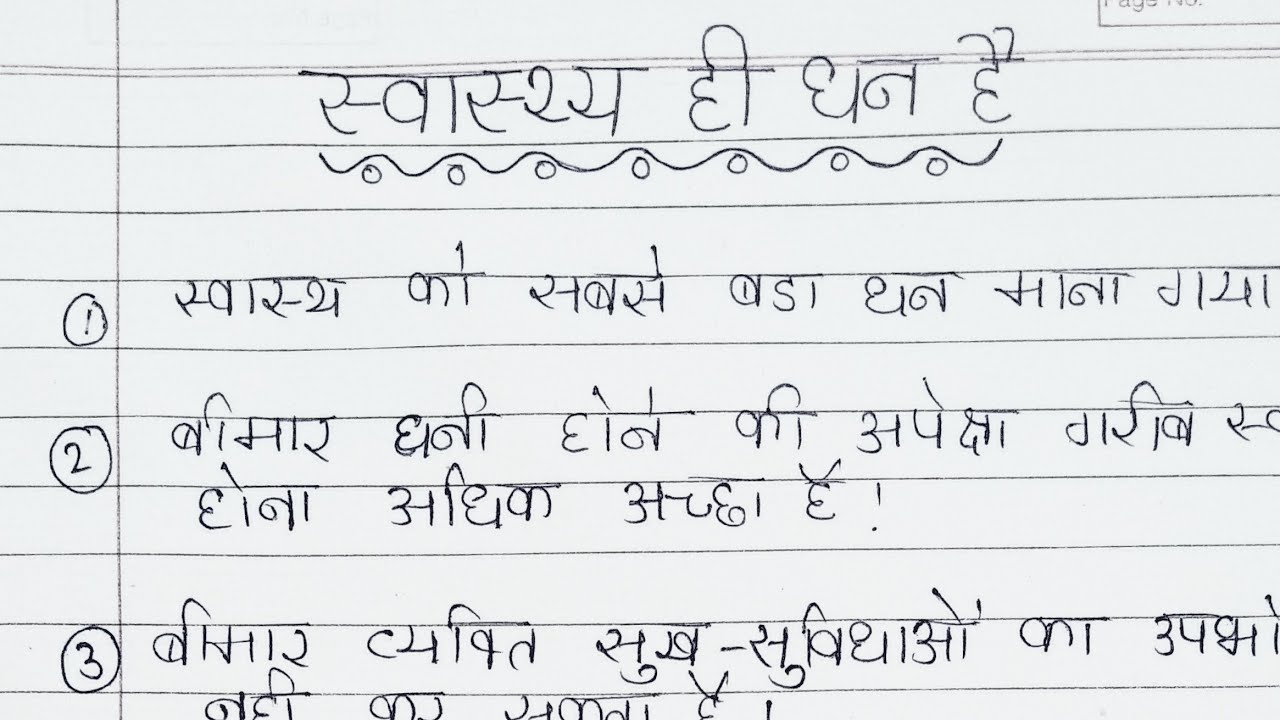 Page No.
स्वास्थ्य ही धन है
① स्वास्थ को सबसे बडा धन माना गया
② बीमार धनी होने की अपेक्षा गरीब
होना अधिक अच्छा है !
③ बीमार व्यक्ति सुख-सुविधाओं का उपभो
नही कर सकता है !